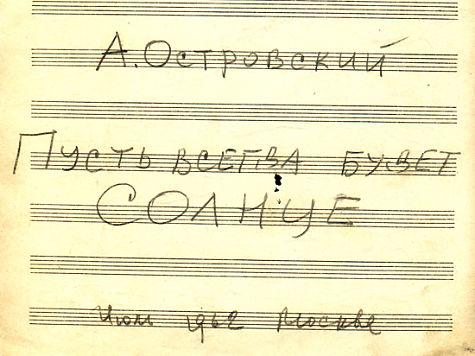 А. Островский
Пусть всегда будет
солнце
Июль 1962 Москва